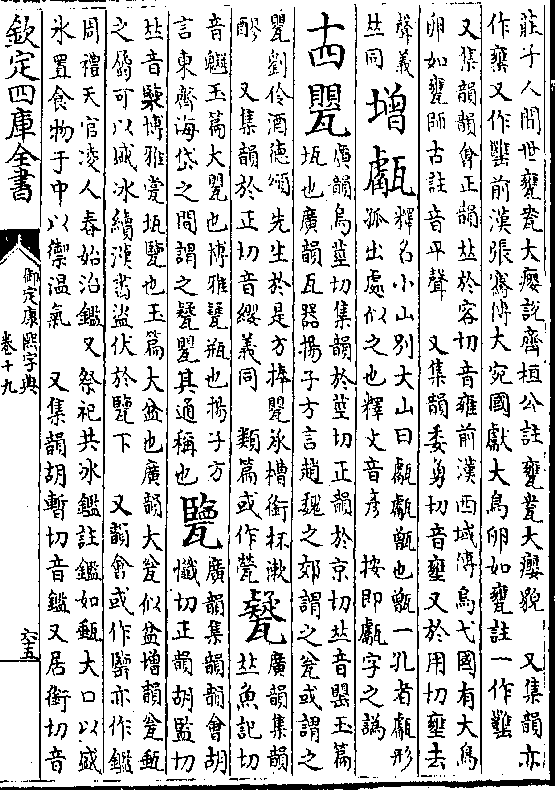 莊子人間世甕㼜大癭說齊桓公註甕㼜大癭貌　又集韻亦
作罋又作罌前漢張騫傳大宛國獻大鳥卵如甕註一作罋
又集韻韻會正韻𠀤於容切音雍前漢西域傳烏弋國有大鳥
卵如甕師古註音平聲　又集韻委勇切音壅又於用切壅去
聲義𠀤同
增甗釋名小山別大山曰甗甗甑也甑一孔者甗形孤出處似之也釋文音彥　按即甗字之譌
十四甖廣韻烏莖切集韻於莖切正韻於京切𠀤音罌玉篇
瓨也廣韻瓦器揚子方言趙魏之郊謂之瓮或謂之
甖劉伶酒德頌先生於是方捧甖承槽銜杯漱
醪　又集韻於正切音纓義同　類篇或作㽦
甈廣韻集韻𠀤魚記切
音魕玉篇大甖也博雅甈瓶也揚子方
言東齊海岱之間謂之甈甖其通稱也
㼻廣韻集韻韻會胡懺切正韻胡監切
𠀤音㯺博雅㽀瓨㼻也玉篇大盆也廣韻大瓮似盆增韻瓮甀
之屬可以盛冰續漢書盜伏於㼻下　又韻會或作㼻亦作鑑
周禮天官凌人春始治鑑又祭祀共冰鑑註鑑如甀大口以盛
冰置食物于中以禦溫氣　又集韻胡暫切音鑑又居銜切音
欽定四庫全書
御定康熙字典
卷十九
六五